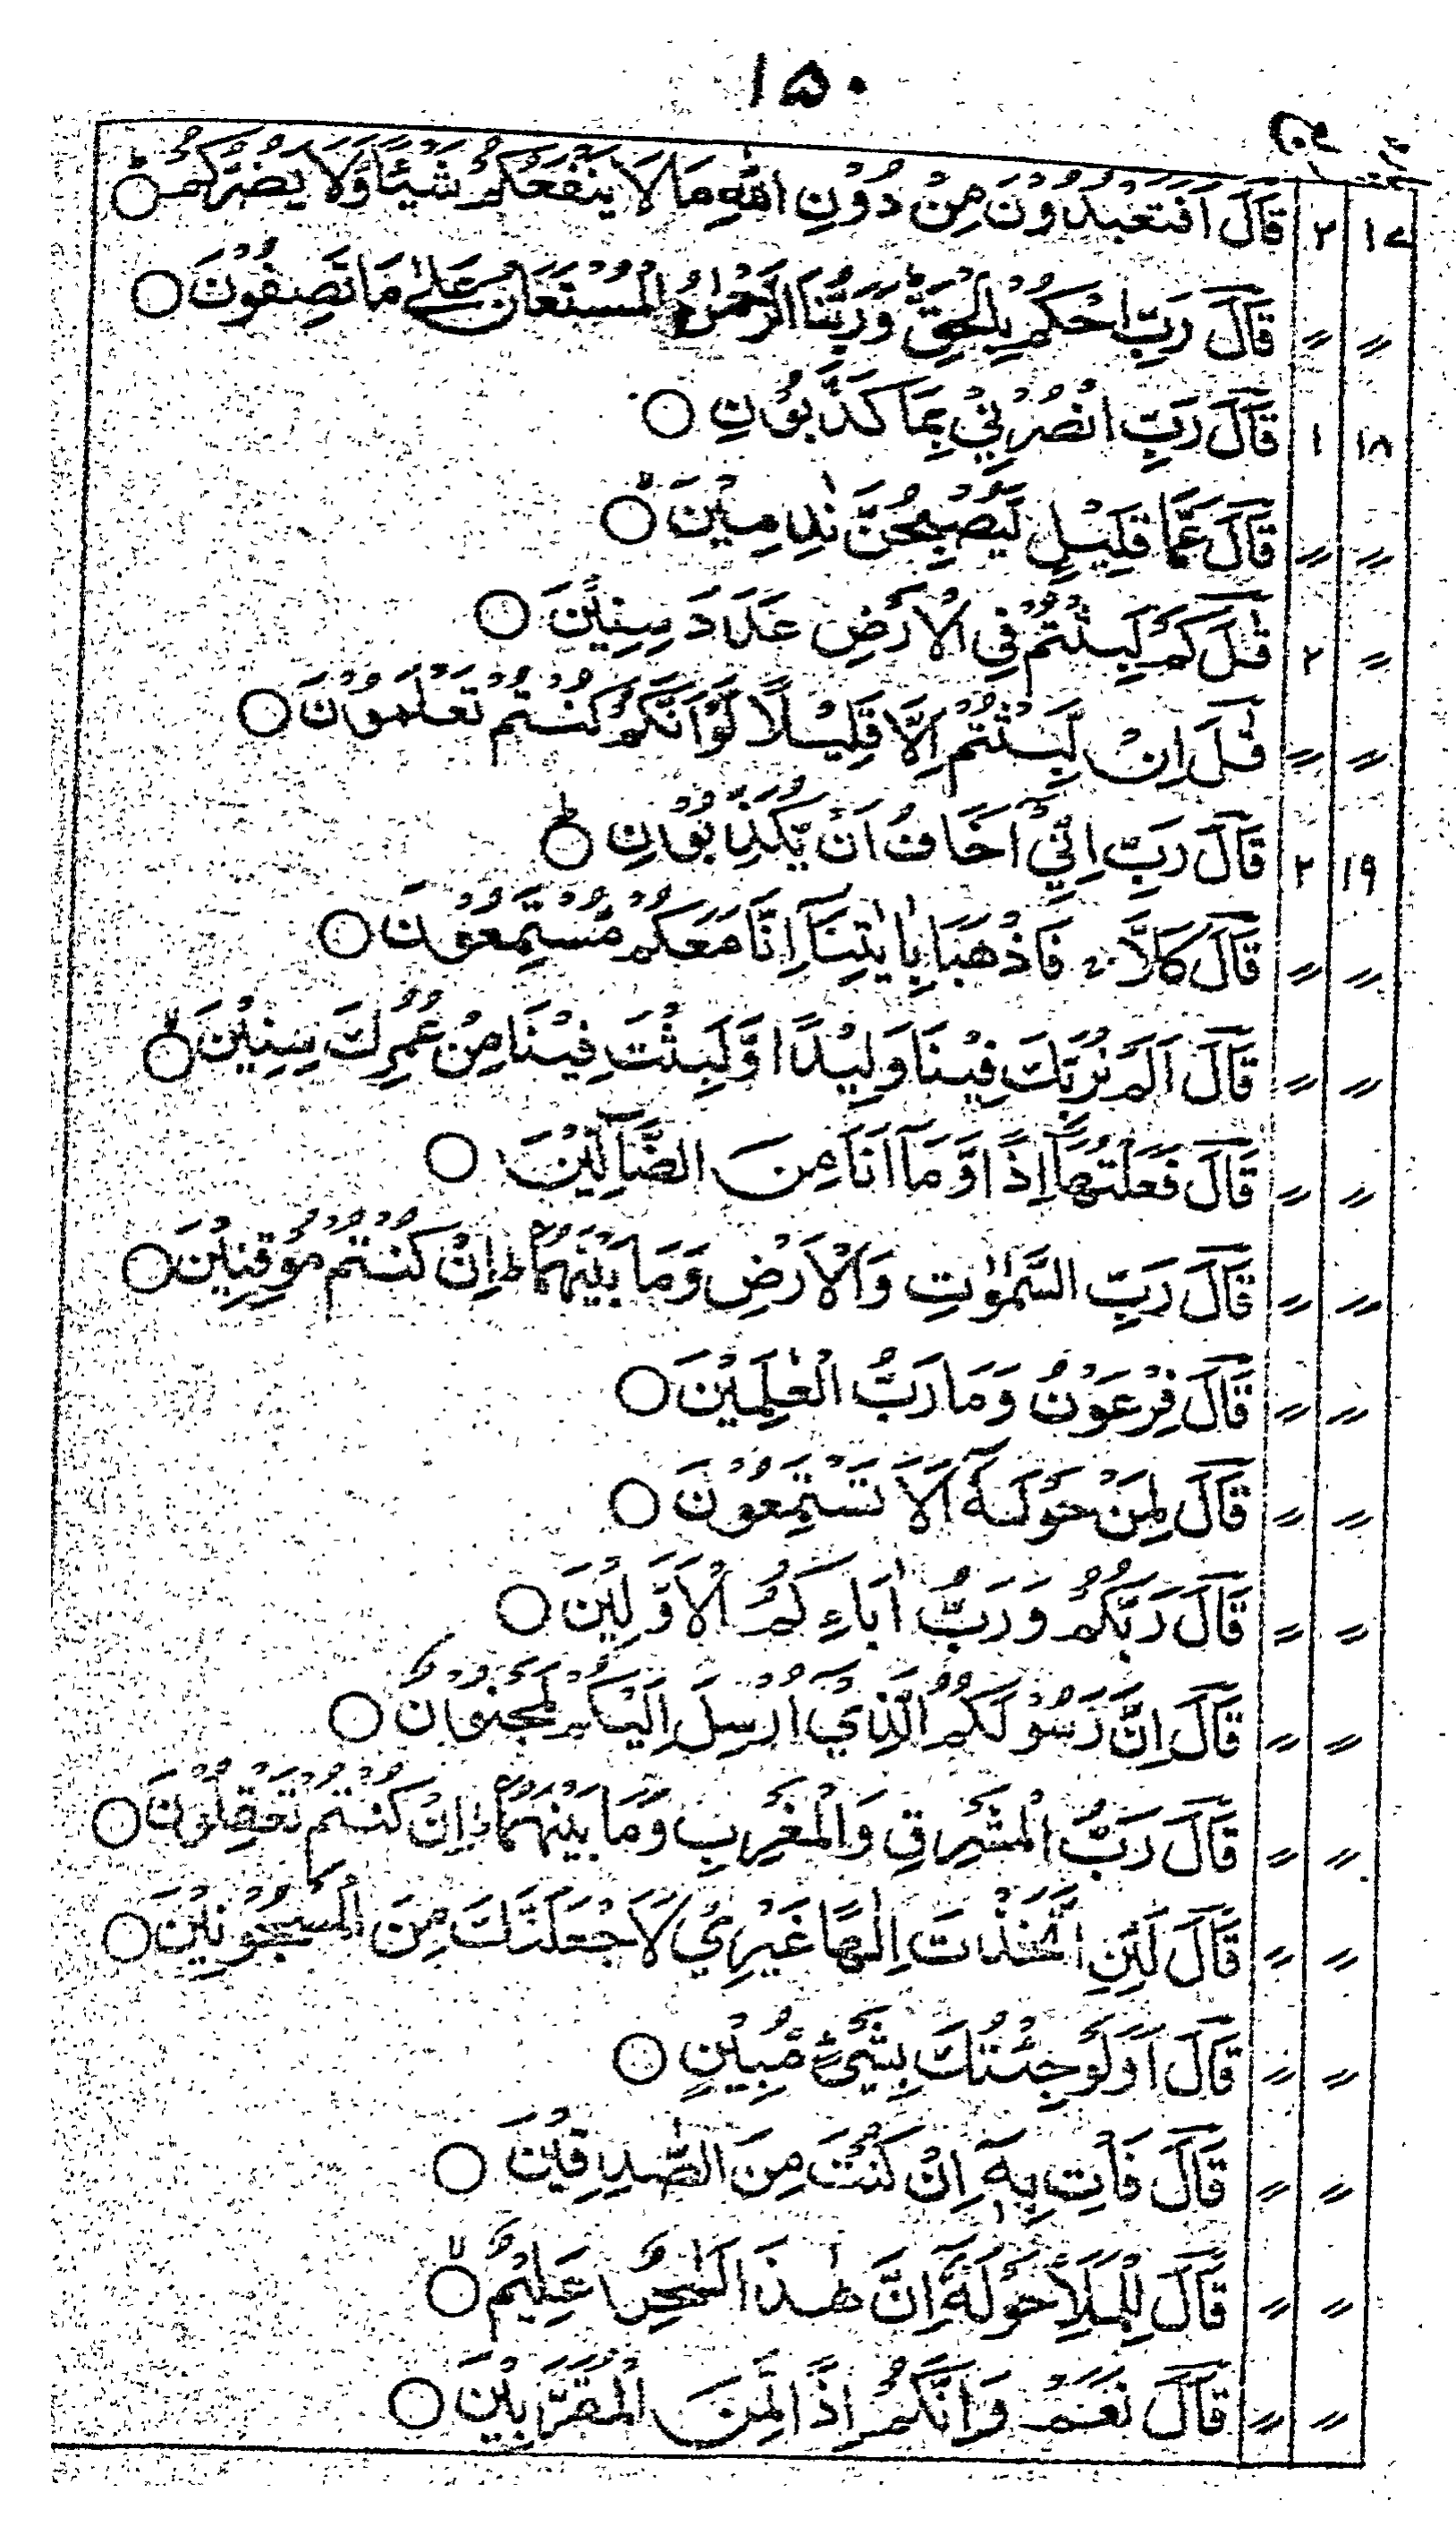 ۱۵۰
۱۷ ۲ قَالَ اَفَتَعْبُدُوْنَ مِنْ دُوْنِ اللّٰهِ مَا لَا يَنْفَعُكُمْ شَيْـًٔا وَّلَا يَضُرُّكُمْ ○ؕ
〃 〃 قٰلَ رَبِّ احْكُمْ بِالْحَقِّ ؕ وَرَبُّنَا الرَّحْمٰنُ الْمُسْتَعَانُ عَلٰى مَا تَصِفُوْنَ ○
۱۸ ۱ قَالَ رَبِّ انْصُرْنِيْ بِمَا كَذَّبُوْنِ ○
〃 〃 قَالَ عَمَّا قَلِيْلٍ لَّيُصْبِحُنَّ نٰدِمِيْنَ ○ۚ
〃 ۲ قٰلَ كَمْ لَبِثْتُمْ فِي الْاَرْضِ عَدَدَ سِنِيْنَ ○
〃 〃 قٰلَ اِنْ لَّبِثْتُمْ اِلَّا قَلِيْلًا لَّوْ اَنَّكُمْ كُنْتُمْ تَعْلَمُوْنَ ○
۱۹ ۲ قَالَ رَبِّ اِنِّيْٓ اَخَافُ اَنْ يُّكَذِّبُوْنِ ○ؕ
〃 〃 قَالَ كَلَّا ۚ فَاذْهَبَا بِاٰيٰتِنَآ اِنَّا مَعَكُمْ مُّسْتَمِعُوْنَ ○
〃 〃 قَالَ اَلَمْ نُرَبِّكَ فِيْنَا وَلِيْدًا وَّلَبِثْتَ فِيْنَا مِنْ عُمُرِكَ سِنِيْنَ ○ۙ
〃 〃 قَالَ فَعَلْتُهَآ اِذًا وَّمَآ اَنَا مِنَ الضَّآلِّيْنَ ○
〃 〃 قَالَ رَبِّ السَّمٰوٰتِ وَالْاَرْضِ وَمَا بَيْنَهُمَا ؕ اِنْ كُنْتُمْ مُّوْقِنِيْنَ ○
〃 〃 قَالَ فِرْعَوْنُ وَمَا رَبُّ الْعٰلَمِيْنَ ○
〃 〃 قَالَ لِمَنْ حَوْلَهٗٓ اَلَا تَسْتَمِعُوْنَ ○
〃 〃 قَالَ رَبُّكُمْ وَرَبُّ اٰبَآءِكُمُ الْاَوَّلِيْنَ ○
〃 〃 قَالَ اِنَّ رَسُوْلَكُمُ الَّذِيْٓ اُرْسِلَ اِلَيْكُمْ لَمَجْنُوْنٌ ○
〃 〃 قَالَ رَبُّ الْمَشْرِقِ وَالْمَغْرِبِ وَمَا بَيْنَهُمَا ؕ اِنْ كُنْتُمْ تَعْقِلُوْنَ ○
〃 〃 قَالَ لَئِنِ اتَّخَذْتَ اِلٰهًا غَيْرِيْ لَاَجْعَلَنَّكَ مِنَ الْمَسْجُوْنِيْنَ ○
〃 〃 قَالَ اَوَلَوْ جِئْتُكَ بِشَيْءٍ مُّبِيْنٍ ○
〃 〃 قَالَ فَاْتِ بِهٖٓ اِنْ كُنْتَ مِنَ الصّٰدِقِيْنَ ○
〃 〃 قَالَ لِلْمَلَاِ حَوْلَهٗٓ اِنَّ هٰذَا لَسٰحِرٌ عَلِيْمٌ ○ۙ
〃 〃 قَالَ نَعَمْ وَاِنَّكُمْ اِذًا لَّمِنَ الْمُقَرَّبِيْنَ ○